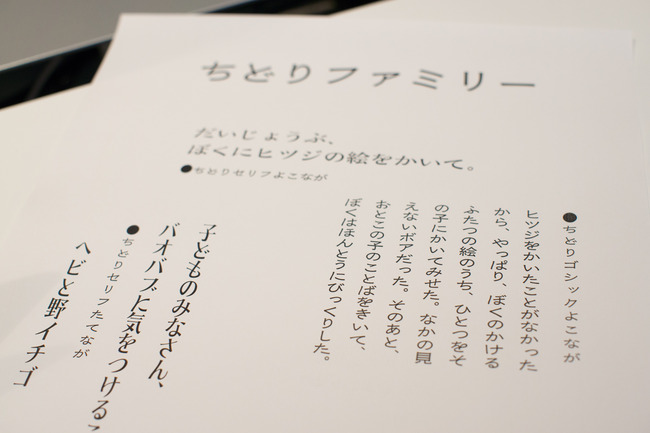 ちどりファミリー
だいじょうぶ、
ぼくにヒツジの絵をかいて。
●ちどりセリフよこなが
●ちどりゴシックよこなが
ヒツジをかいたことがなかった
から、やっぱり、ぼくのかける
ふたつの絵のうち、ひとつをそ
の子にかいてみせた。なかの見
えないボアだった。そのあと、
おとこの子のことばをきいて、
ぼくはほんとうにびっくりした。
子どものみなさん、
バオバブに気をつける
●ちどりセリフたてなが
ヘビと野イチゴ